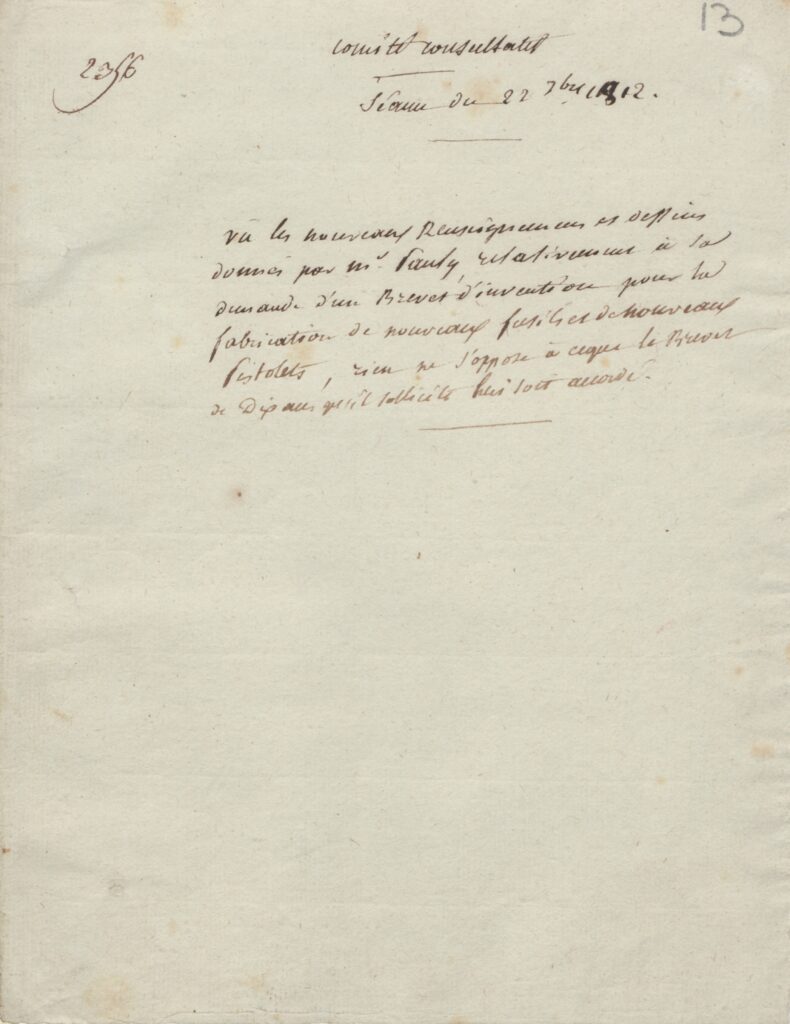 13
2356
Comité consultatif
Séance du 22 7bre 1812.
Vu les nouveaux Renseignemens et dessins
donnés par mr. Pauly, relativement à sa
demande d'un Brevet d'invention pour la
fabrication de nouveaux fusils et de nouveaux
Pistolets, rien ne s'oppose à ceque le Brevet
de Dix ans qu'il sollicite lui soit accordé.